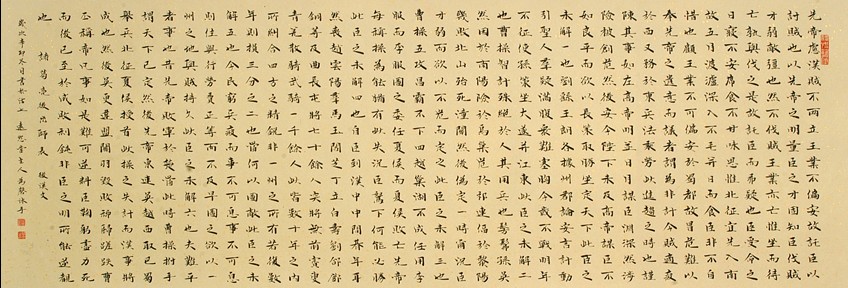 先帝慮漢賊不兩立王業不偏安故託臣以
討賊也以先帝之明量臣之才固知臣伐賊
才弱敵彊也然不伐賊王業亦亡惟坐而待
亡孰與伐之是故託臣而弗疑也臣受命之
日寢不安席食不甘味思惟北征宜先入南
故五月渡瀘深入不毛并日而食臣非不自
惜也顧王業不可偏安於蜀都故冒危難以
奉先帝之遺意而議者謂為非計今賊適疲
於西又務於東兵法乘勞此進趨之時也謹
陳其事如左高帝明並日月謀臣淵深然涉
險被創危然後安今陛下未及高帝謀臣不
如良平而欲以長策取勝坐定天下此臣之
未解一也劉繇王朗各據州郡論安言計動
引聖人羣疑滿腹眾難塞胸今歲不戰明年
不征使孫策坐大遂并江東此臣之未解二
也曹操智計殊絕於人其用兵也髣髴孫吳
然困於南陽險於烏巢危於祁連偪於黎陽
幾敗北山殆死潼關然後偽定一時爾況臣
才弱而欲以不危而定之此臣之未解三也
曹操五攻昌霸不下四越巢湖不成任用李
服而李服圖之委任夏侯而夏侯敗亡先帝
每稱操為能猶有此失況臣駑下何能必勝
此臣之未解四也自臣到漢中中間朞年耳
然喪趙雲陽羣馬玉閻芝丁立白壽劉郃鄧
銅等及曲長屯將七十餘人突將無前賨叟
青羌散騎武騎一千餘人此皆數十年之內
所糾合四方之精銳非一州之所有若復數
年則損三分之二也當何以圖敵此臣之未
解五也今民窮兵疲而事不可息事不可息
則住與行勞費正等而不及早圖之欲以一
州之地與賊持久此臣之未解六也夫難平
者事也昔先帝敗軍於楚當此時曹操拊手
謂天下已定然後先帝東連吳越西取巴蜀
舉兵北征夏侯授首此操之失計而漢事將
成也然後吳更違盟關羽毀敗秭歸蹉跌曹
丕稱帝凡事如是難可逆料臣鞠躬盡力死
而後已至於成敗利鈍非臣之明所能逆覩
也
諸葛亮後出師表 後漢文
歲次辛卯冬月書於